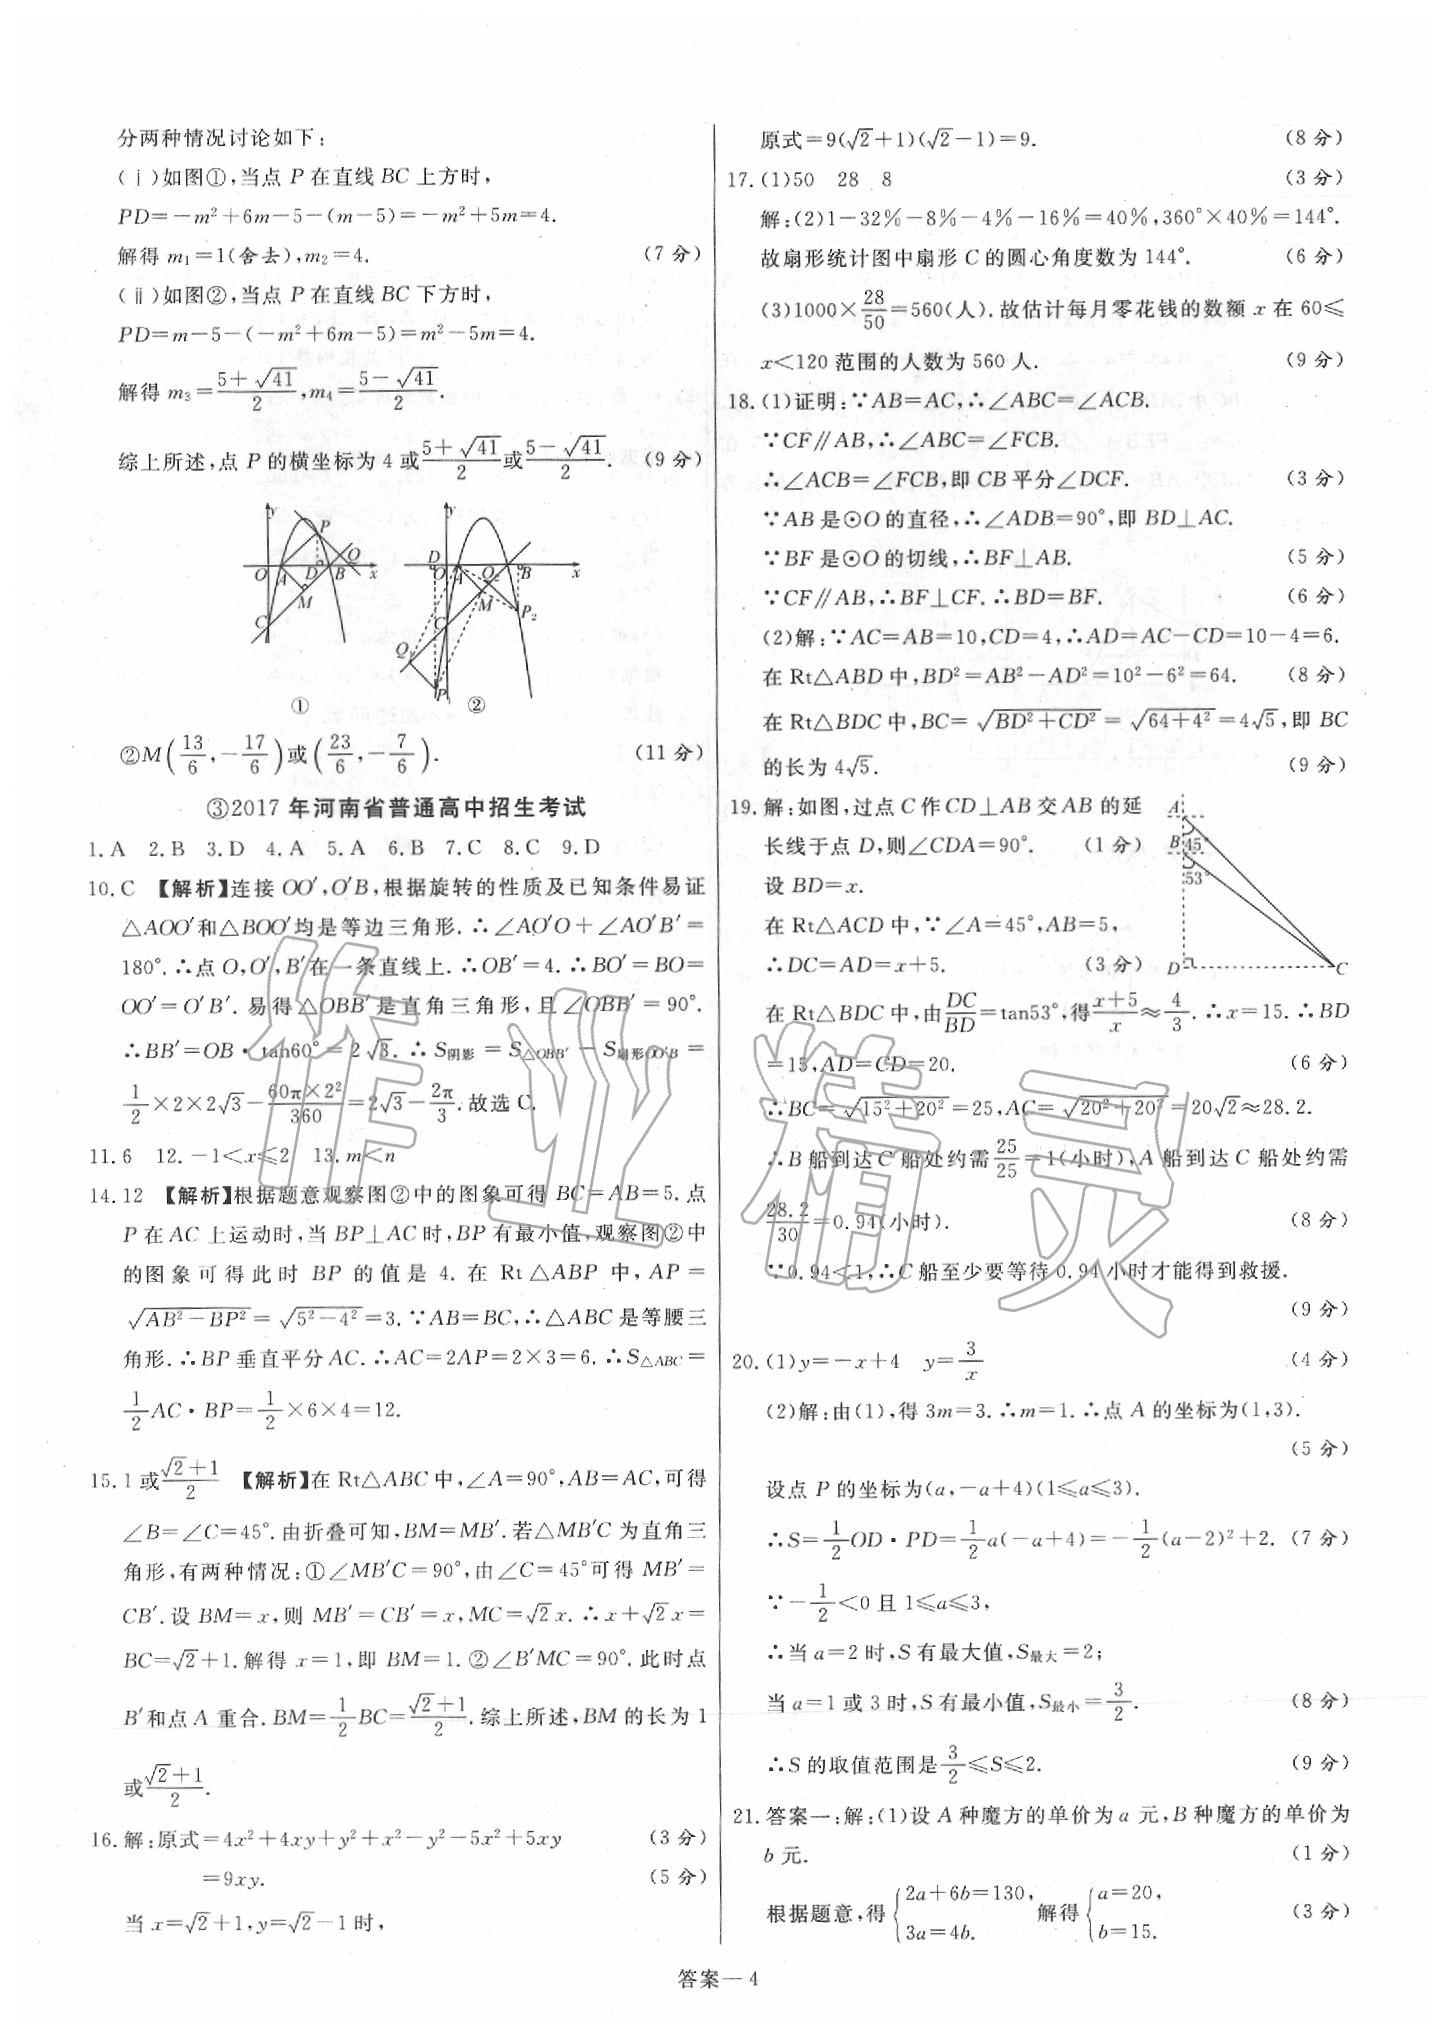 分两种情况讨论如下:
(ⅰ)如图①,当点 P 在直线 BC 上方时,
PD=-m²+6m-5-(m-5)=-m²+5m=4.
解得 m₁=1(舍去),m₂=4. (7 分)
(ⅱ)如图②,当点 P 在直线 BC 下方时,
PD=m-5-(-m²+6m-5)=m²-5m=4.
解得 m₃=(5+√41)/2,m₄=(5-√41)/2.
综上所述,点 P 的横坐标为 4 或(5+√41)/2或(5-√41)/2. (9 分)
① ②
②M(13/6,-17/6)或(23/6,-7/6). (11 分)
③2017 年河南省普通高中招生考试
1.A 2.B 3.D 4.A 5.A 6.B 7.C 8.C 9.D
10.C 【解析】连接 OO′,O′B,根据旋转的性质及已知条件易证
△AOO′和△BOO′均是等边三角形.∴∠AO′O+∠AO′B′=
180°.∴点 O,O′,B′在一条直线上.∴OB′=4.∴BO′=BO=
OO′=O′B′.易得△OBB′是直角三角形,且∠OBB′=90°.
∴BB′=OB·tan60°=2√3.∴S阴影=S△OBB′-S扇形OO′B=
1/2×2×2√3-(60π×2²)/360=2√3-2π/3.故选 C.
11.6 12.-1<x≤2 13.m<n
14.12 【解析】根据题意观察图②中的图象可得 BC=AB=5.点
P 在 AC 上运动时,当 BP⊥AC 时,BP 有最小值,观察图②中
的图象可得此时 BP 的值是 4.在 Rt△ABP 中,AP=
√(AB²-BP²)=√(5²-4²)=3.∵AB=BC,∴△ABC 是等腰三
角形.∴BP 垂直平分 AC.∴AC=2AP=2×3=6.∴S△ABC=
1/2AC·BP=1/2×6×4=12.
15.1 或(√2+1)/2 【解析】在 Rt△ABC 中,∠A=90°,AB=AC,可得
∠B=∠C=45°.由折叠可知,BM=MB′.若△MB′C 为直角三
角形,有两种情况:①∠MB′C=90°,由∠C=45°可得 MB′=
CB′.设 BM=x,则 MB′=CB′=x,MC=√2x.∴x+√2x=
BC=√2+1.解得 x=1,即 BM=1.②∠B′MC=90°.此时点
B′和点 A 重合.BM=1/2BC=(√2+1)/2.综上所述,BM 的长为 1
或(√2+1)/2.
16.解:原式=4x²+4xy+y²+x²-y²-5x²+5xy (3 分)
=9xy. (5 分)
当 x=√2+1,y=√2-1 时,
原式=9(√2+1)(√2-1)=9. (8 分)
17.(1)50 28 8 (3 分)
解:(2)1-32%-8%-4%-16%=40%,360°×40%=144°.
故扇形统计图中扇形 C 的圆心角度数为 144°. (6 分)
(3)1000×28/50=560(人).故估计每月零花钱的数额 x 在 60≤
x<120 范围的人数为 560 人. (9 分)
18.(1)证明:∵AB=AC,∴∠ABC=∠ACB.
∵CF∥AB,∴∠ABC=∠FCB.
∴∠ACB=∠FCB,即 CB 平分∠DCF. (3 分)
∵AB 是⊙O 的直径,∴∠ADB=90°,即 BD⊥AC.
∵BF 是⊙O 的切线,∴BF⊥AB. (5 分)
∵CF∥AB,∴BF⊥CF.∴BD=BF. (6 分)
(2)解:∵AC=AB=10,CD=4,∴AD=AC-CD=10-4=6.
在 Rt△ABD 中,BD²=AB²-AD²=10²-6²=64. (8 分)
在 Rt△BDC 中,BC=√(BD²+CD²)=√(64+4²)=4√5,即 BC
的长为 4√5. (9 分)
19.解:如图,过点 C 作 CD⊥AB 交 AB 的延
长线于点 D,则∠CDA=90°. (1 分)
设 BD=x.
在 Rt△ACD 中,∵∠A=45°,AB=5,
∴DC=AD=x+5. (3 分)
A B 45° 53° D C
在 Rt△BDC 中,由DC/BD=tan53°,得(x+5)/x≈4/3.∴x=15.∴BD
=15,AD=CD=20. (6 分)
∴BC=√(15²+20²)=25,AC=√(20²+20²)=20√2≈28.2.
∴B 船到达 C 船处约需25/25=1(小时),A 船到达 C 船处约需
28.2/30=0.94(小时). (8 分)
∵0.94<1,∴C 船至少要等待 0.94 小时才能得到救援.
(9 分)
20.(1)y=-x+4 y=3/x (4 分)
(2)解:由(1),得 3m=3.∴m=1.∴点 A 的坐标为(1,3).
(5 分)
设点 P 的坐标为(a,-a+4)(1≤a≤3).
∴S=1/2OD·PD=1/2a(-a+4)=-1/2(a-2)²+2. (7 分)
∵-1/2<0 且 1≤a≤3,
∴当 a=2 时,S 有最大值,S最大=2;
当 a=1 或 3 时,S 有最小值,S最小=3/2. (8 分)
∴S 的取值范围是3/2≤S≤2. (9 分)
21.答案一:解:(1)设 A 种魔方的单价为 a 元,B 种魔方的单价为
b 元. (1 分)
根据题意,得{2a+6b=130, 3a=4b. 解得{a=20, b=15. (3 分)
答案—4
作业精灵